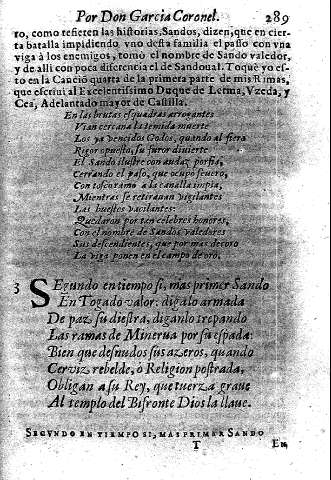 Por Don Garcia Coronel. 289
ro, como refieren las historias, Sandos, dizen, que en cier
ta batalla impidiendo vno desta familia el passo con vna
viga à los enemigos, tomò el nombre de Sando valedor,
y de alli con poca diferencia el de Sandoual. Toquè yo es-
to en la Canciō quarta de la primera parte de mis Rimas,
que escriui al Excelentissimo Duque de Lerma, Vzeda, y
Cea, Adelantado mayor de Castilla.
En las brutas esquadras arrogantes
Vian cercana la temida muerte
Los ya vencidos Godos, quando al fiero
Rigor opuesta, su furor diuierte
El Sando ilustre con audaz porfia,
Cerrando el paso, que ocupò seuero,
Con tosco ramo a la canalla impia,
Mientras se retirauan vigilantes
Las huestes vacilantes:
Quedaron por tan celebres honores,
Con el nombre de Sandos valedores
Sus descendientes, que por mas decoro
La viga ponen en el campo de oro.
3 SEgundo en tiempo si, mas primer Sando
En Togado valor: digalo armada
De paz su diestra, diganlo trepando
Las ramas de Minerua por su espada:
Bien que desnudos sus azeros, quando
Cerviz rebelde, ò Religion postrada,
Obligan a su Rey, que tuerza graue
Al templo del Bifronte Dios la llaue.
SEGVNDO EN TIEMPO SI, MAS PRIMER SANDO
T En